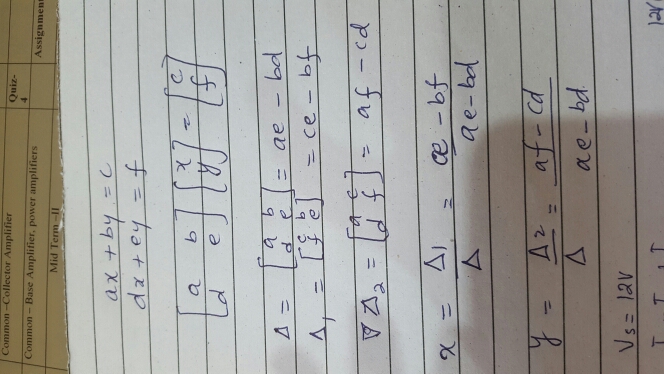 Common –Collector Amplifier
Quiz-
4
Common – Base Amplifier, power amplifiers
Assignment
Mid Term –II
ax + by = c
dx + ey = f
[a b
d e] [x
y] = [c
f]
Δ = [a b
d e] = ae - bd
Δ1 = [c b
f e] = ce - bf
∇ Δ2 = [a c
d f] = af - cd
x = Δ1/Δ = ce - bf/ae - bd
y = Δ2/Δ = af - cd/ae - bd
Vs = 12V
12V